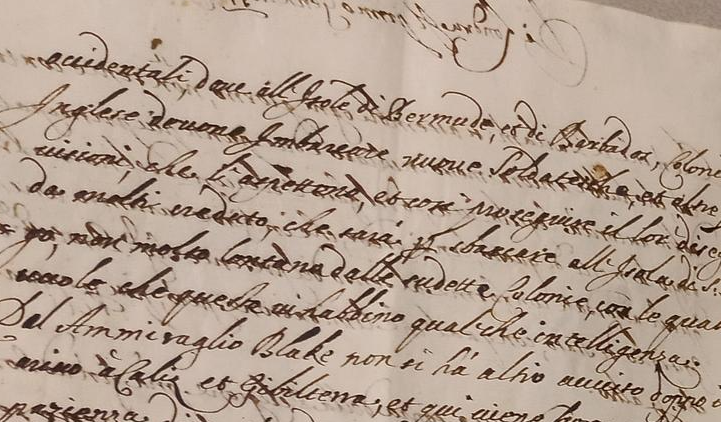 accidentali, doue all'Isole di Bermude, et di Barbados, Colonie
Inglese douono Imbarcare nuoue Soldatesche, et altre
uisioni, che l'aspettono, et così proseguire il lor diseg
da molti creduto, che sarà p sbarcare all'Isola di S.
go, non molto lontana dalle sudette Colonie, con le qua
uuole che questi ui habbino qualche intelligenza:
Del Ammiraglio Blake non si hà altro auuiso doppo il
riuo à Caliz et Gibilterra, et qui uiene